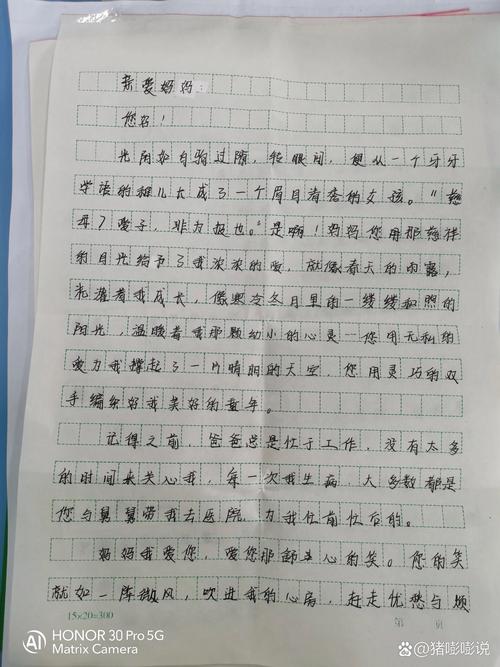 亲爱妈妈：
您好！
光阴如白驹过隙，轻眼间，便从一个牙牙
学语的稚儿长成了一个眉目青杏的女孩。“慈
母了爱子，非为报也。”是啊！妈妈您用那慈祥
的目光给予了我浓浓的爱，就像春天的雨露，
滋潤着我成长，像寒冷冬月里的一缕缕和煦的
阳光，温暖着我那颗幼小的心灵一您用无私的
爱为我撑起了一片晴朗的天空，您用灵巧的双
手编织好我美好的童年。
记得之前，爸爸总是忙于工作，没有太多
的时间来关心我，每一次我生病，大多数都是
您与舅舅带我去医院，为我忙前忙后的。
妈妈我爱您，爱您那甜美心的笑。您的笑
就如一阵微风，吹进我的心房，赶走忧愁与烦
15×20=300
第 页
HONOR 30 Pro 5G
Matrix Camera
@猪嘭嘭说